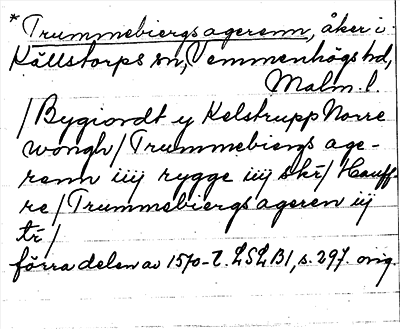 * Trummebiergs agerenn, åker i
Källstorps sn, Vemmenhögs hd,
Malm. l.
/ Bygiordt y Kelstrupp Norre
wongh / Trummebiergs age-
renn iiij rygge iiij skr̄ / Hauff-
re / Trummebiergs ageren iij
tr̄ /
förra delen av 1570-t. LSLB1, s. 297. orig.